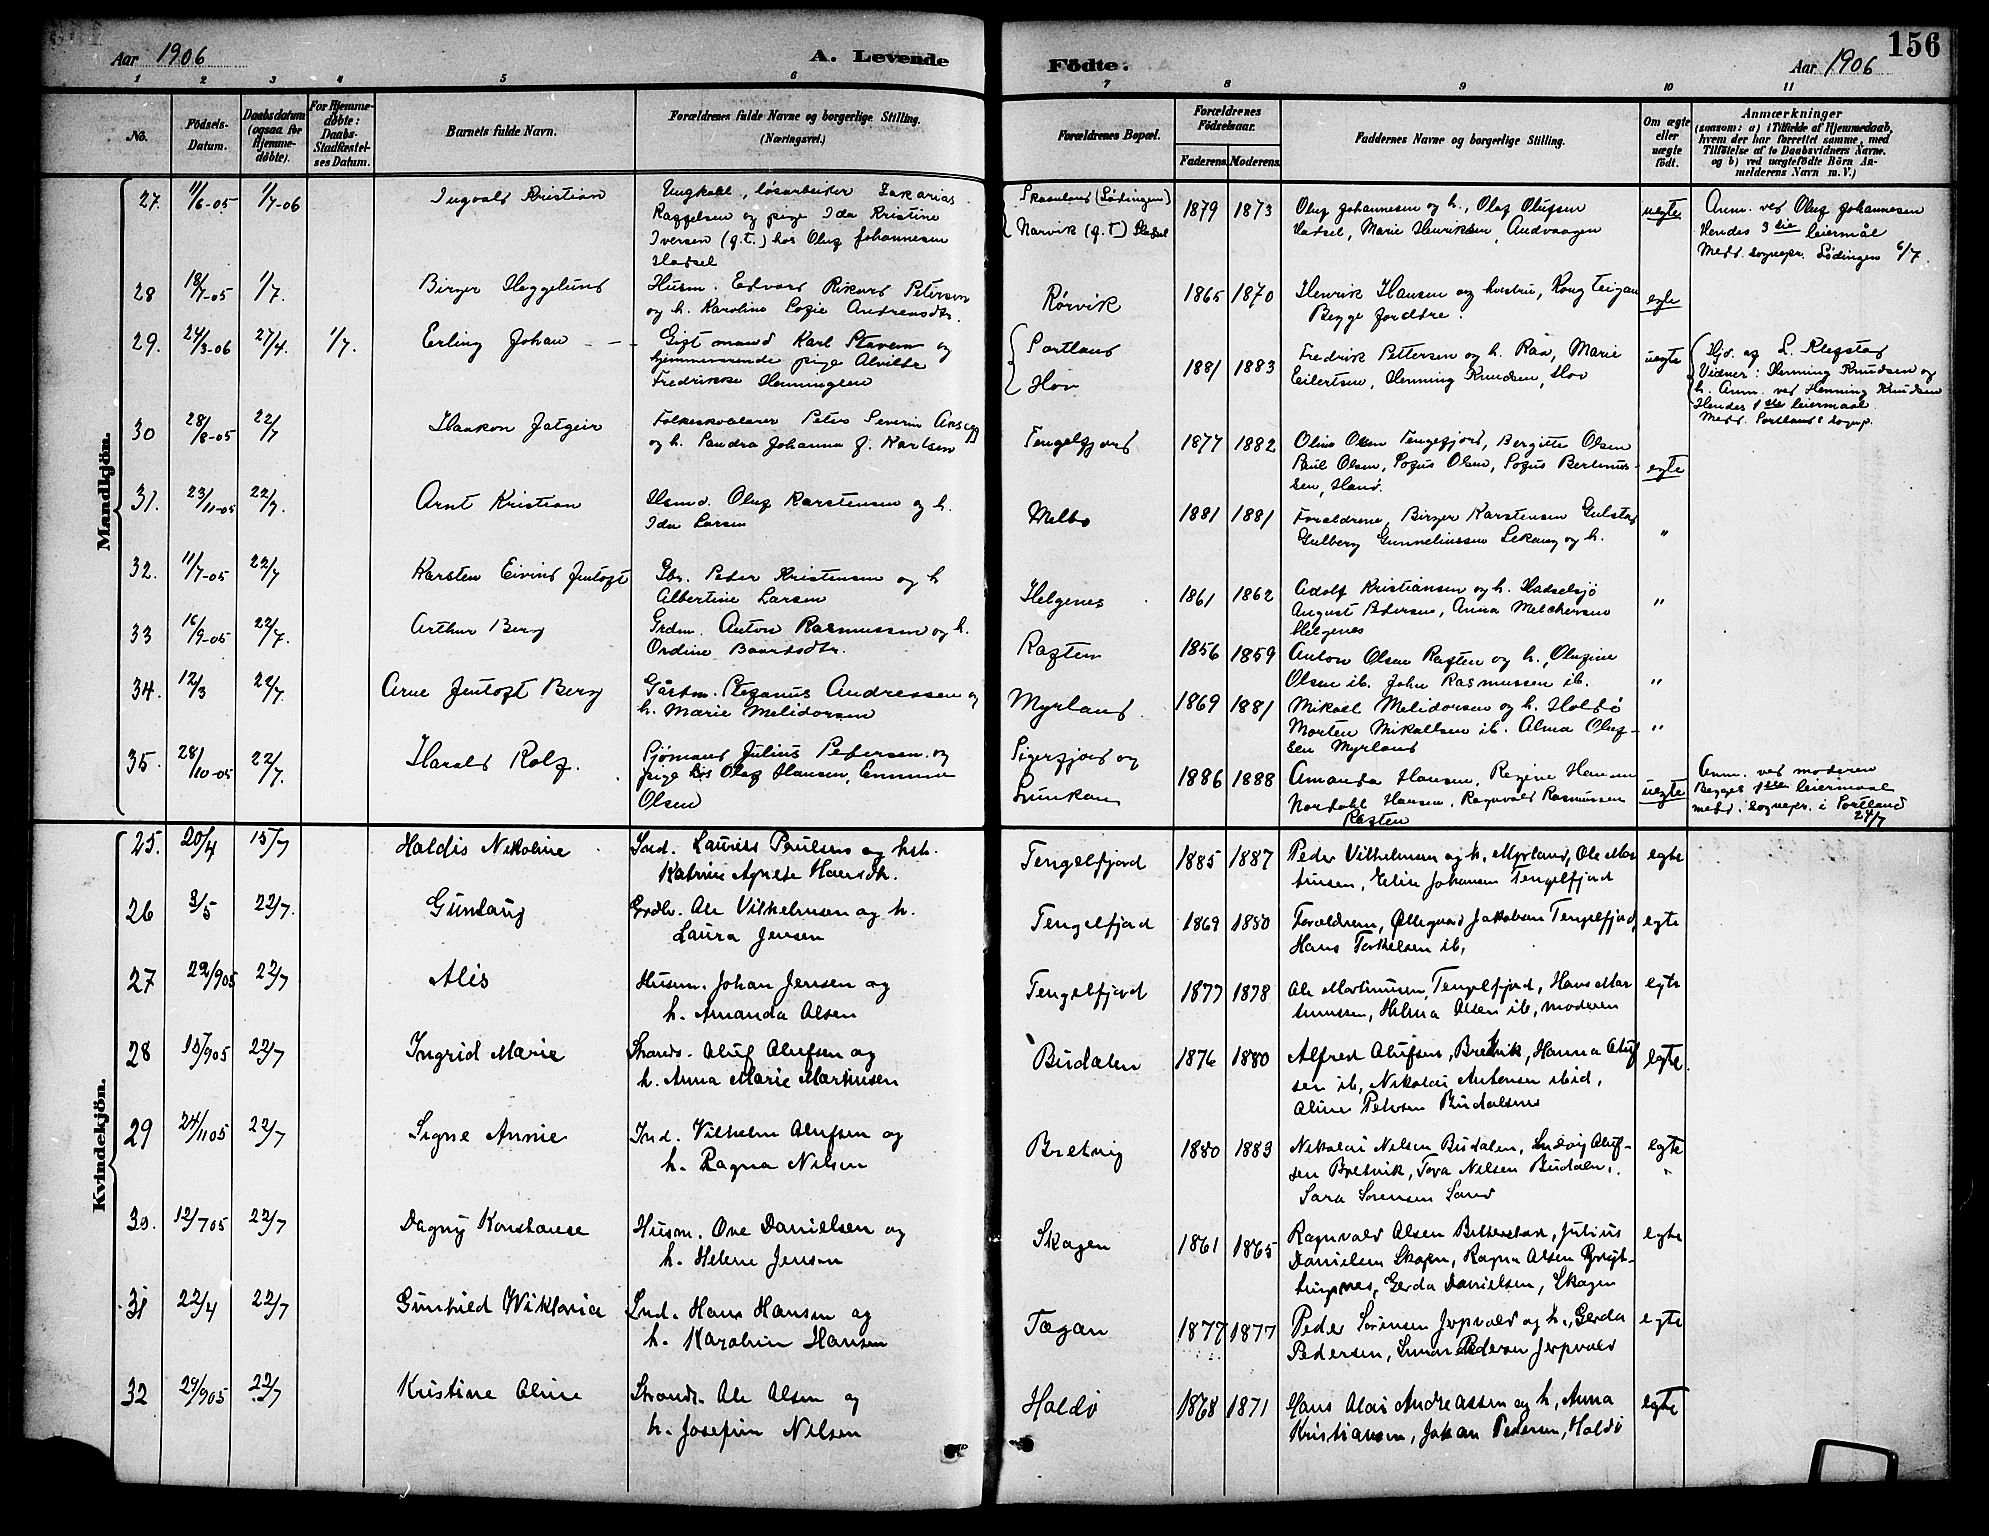 Aar 1906
A. Levende
Födte.
Aar 1906
156
1 2 3 4 5 6 7 8 9 10 11
No.
Födsels-Datum.
Daabsdatum (ogsaa for Hjemmedöbte).
For Hjemmedöbte: Daabs-Stadfæstelses Datum.
Barnets fulde Navn.
Forældrenes fulde Navne og borgerlige Stilling.
(Næringsvei.)
Forældrenes Bopæl.
Forældrenes Födselsaar.
Faderens. Moderens.
Faddernes Navne og borgerlige Stilling.
Om ægte eller uægte födt.
Anmærkninger
(saasom: a) i Tilfælde af Hjemmedaab,
hvem der har forrettet samme, med
Tilföielse af to Daabsvidners Navne.
og b) ved uægtefödte Börn Anmelderens Navn m. V.)
Mandkjön.
27. 11/6-05 1/7-06 Ingvald Kristian
Ungkarl, løsarbeider Zakarias
Raggelsen og pige Ida Kristine
Iversen (g.t.) hos Oluf Johannesen
Hadsel
(Lødingen)
Narvik (g.t)
1879 1873
Oluf Johannesen og h., Olaf Olufsen
Hadsel, Marie Henriksen, Andvaagen
uegte
Anm. ved Oluf Johannesen
Hendes 3die leiermål
Medd. sognepr. Lødingen 6/7.
28 18/7-05 1/7. Birger Heggelund
Husm. Edvard Rikard Petersen
og h. Karoline Sofie Andreasdtr.
Rørvik
1865 1870
Henrik Hansen og hustru,
Begge fordtre.
egte
29. 24/3-06 27/4. 1/7. Erling Johan
Gift mand Karl Stavem og
hjemmeværende pige Alvilde
Fredrikke Henningsen
Portland
Hov
1881 1883
Fredrik Pettersen og h. Raa, Marie
Eilertsen, Henning Knudsen, Hov
uegte
Hjd. af L. Klegstad
Vidner: Henning Knudsen og
h. Anm. ved Henning Knudsen
Hendes 1ste leiermaal.
Medd. Portlands sognep.
30 28/8-05 22/7 Haakon Jatgeir
Peter Severin
og h. Sandra Johanna f. Karlsen
Tengelfjord
1877 1882
Oline Olsen Tengelfjord, Bergitte Olsen
Paul Olsen, Sofus Olsen, Sofus Berthinus-
sen, Hand.
egte
31. 23/11-05 22/7. Arnt Kristian
Husmd. Oluf Karstensen og h.
Ida Larsen
Melbo
1881 1881
Forældrene, Birger Karstensen Gulstad
Gulberg Gunneliussen Lekang og h.
"
32. 11/7-05 22/7 Karsten Eivind Jentoft
Gbr. Peder Kristensen og h
Albertine Larsen
Helgenes
1861 1862
Adolf Kristiansen og h. Hadselsjø
August Pedersen, Anna Melchersen
Helgenes
"
33 16/9-05 22/7. Arthur Berg
Grdm. Anton Rasmussen og h.
Ordine Baardsdtr.
Raften
1856 1859
Anton Olsen Raften og h., Olufine
Olsen ib. John Rasmussen ib.
"
34. 12/3 22/7. Arne Jentoft Berg
Gårdm. Stefanus Andreasen og
h. Marie Melidorsen
Myrland
1869 1881
Mikael Melidorsen og h. Holdø
Morten Mikalsen ib. Alma Oluf-
sen Myrland
"
35. 28/10-05 22/7. Harald Rolf.
Sjømand Julius Pedersen og
pige hos Olaf Hansen, Emma
Olsen
Sigerfjord og
Lunkan
1886 1888
Amanda Hansen, Regine Hansen
Nordahl Hansen, Ragnvald Rasmussen
Raften
uegte
Anm. ved moderen
Begges 1ste leiermaal
medd. sognepr. i Portland
24/7
Kvindekjön.
25. 20/4 15/7 Haldis Nikoline
Ind. Laurits Paulsen og hst.
Katrine Agnete Hansdtr.
Tengelfjord
1885 1887
Peder Vilhelmsen og h. Myrland, Ole Mar
tinsen, Elise Johansen Tengelfjord
egte
26 3/5 22/7. Gunlaug
Grdbr. Ole Vilhelmsen og h.
Laura Jensen
Tengelfjord
1869 1880
Forældrene, Øllegaard Jakobsen Tengelfjord,
Hans Torkelsen ib,
egte
27 29/905 22/7 Alis
Husm. Johan Jensen og
h. Amanda Olsen
Tengelfjord
1877 1878
Ole Martinusen, Tengelfjord, Hans Mar
tinussen, Helma Olsen ib, moderen
egte
28 15/905 22/7 Ingrid Marie
Strands. Oluf Olufsen og
h. Anna Marie Martinsen
Budalen
1876 1880
Alfred Olufsen, Bretvik, Hanna Oluf
sen ib, Nikolai Antonsen ibid,
Aline Petersen Budalen
egte
29 24/1105 22/7 Signe Annie
Ind. Vilhelm Olufsen og
h. Ragna Nilsen
Bretvig
1880 1883
Nikolai Nilsen Budalen, Ludvig Oluf-
sen Bretvik, Tora Nilsen Budalen,
Sara Sørensen Sand
egte
"
30. 12/705 22/7 Dagny Konstanse
Husm. Ove Danielsen og
h. Helene Jensen
Skagen
1861 1865
Ragnvald Olsen Bitterstad, Julius
Danielsen Skagen, Ragna Olsen
Gerda Danielsen, Skagen
egte
31 22/4 22/7 Gunhild Wiktoria
Ind. Hans Hansen og
h. Karoline Hansen
Tøgan
1877 1877
Peder Sørensen Jerpvold og h., Gerda
Pedersen, Pedersen Jerpvold
egte
32 29/905 22/7 Kristine Oline
Strands. Ole Olsen og
h. Josefine Nilsen
Haldø
1868 1871
Hans Olai Andreassen og h, Anna
Kristiansen, Johan Pedersen, Haldø
egte